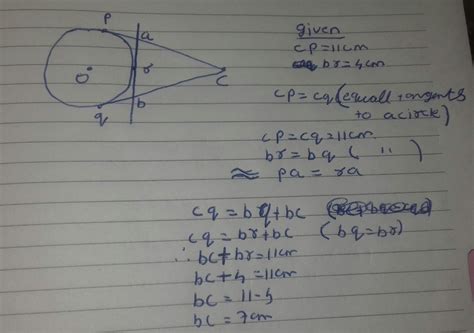 p
a
o
r
c
b
q
given
cp=11cm
br=4cm
cp=cq(equall tangents
to a circle)
cp=cq=11cm
br=bq ( " )
≈ pa=ra
cq=bq+bc
cq=br+bc (bq=br)
∴ bc+br=11cm
bc+4=11cm
bc=11-4
bc=7cm